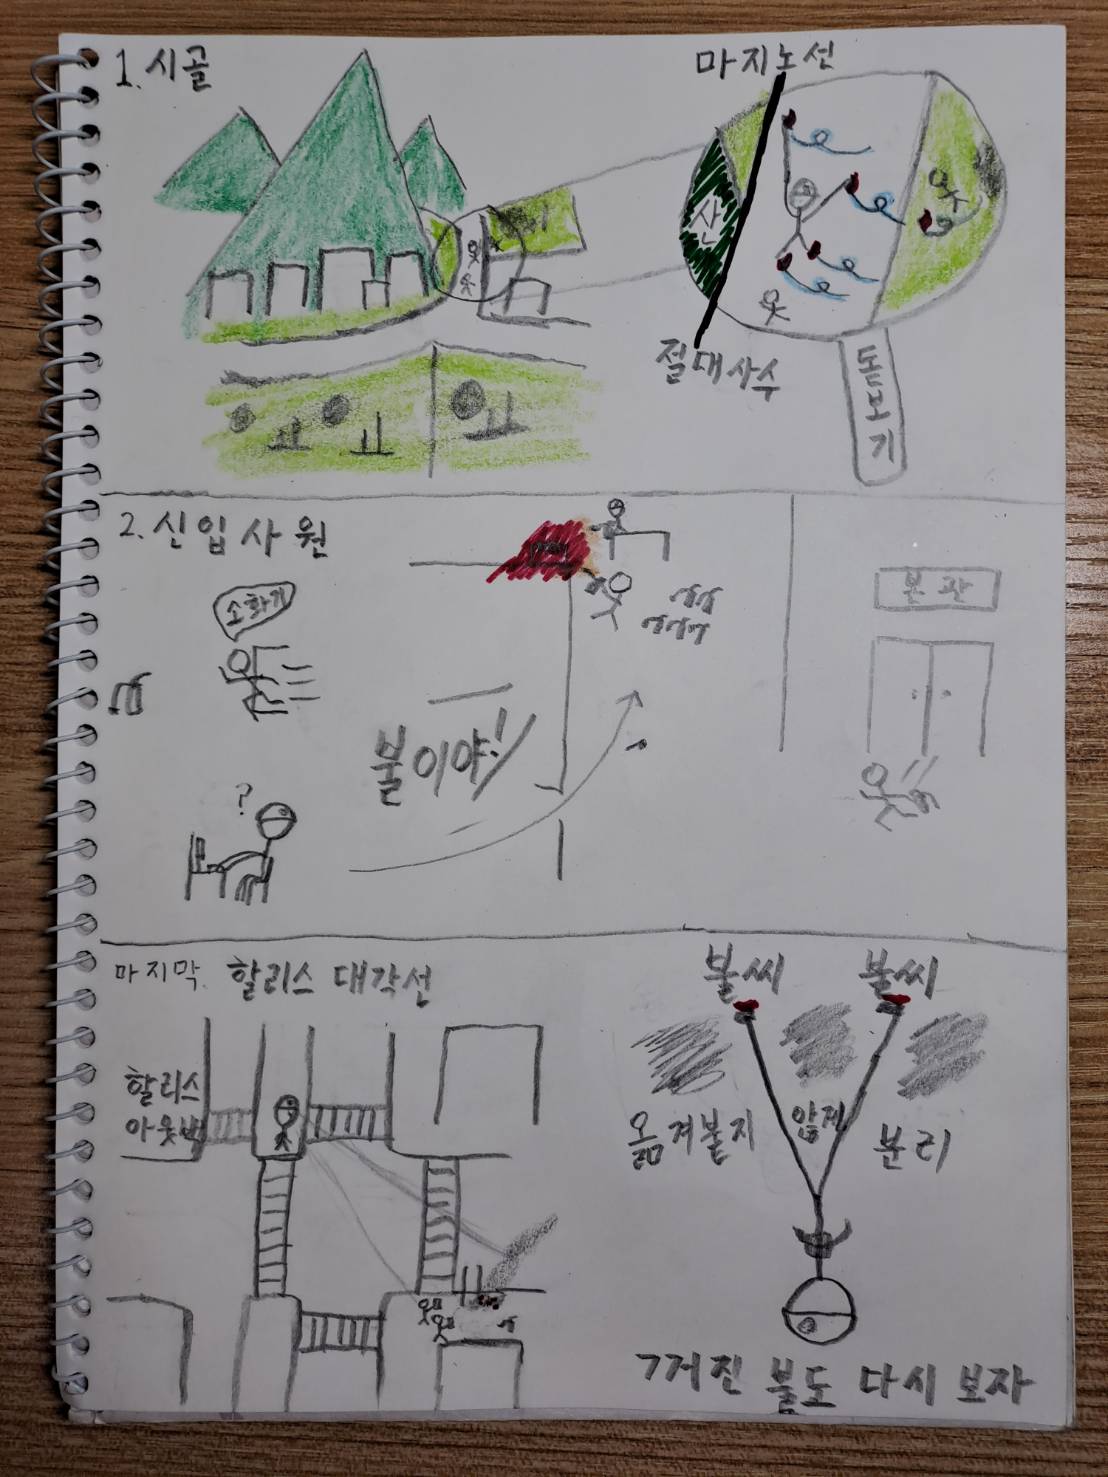 1. 시골
마지노선
산
절대사수
돋보기
2. 신입사원
소화기
본관
불이야!
?
마지막. 할리스 대각선
불씨 불씨
할리스
아웃백
옮겨붙지 않게 분리
꺼진 불도 다시 보자